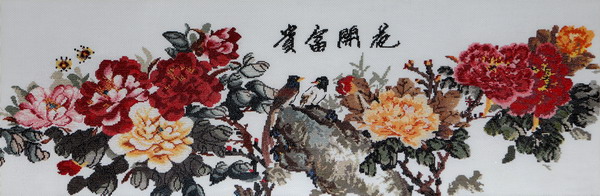 花開富貴